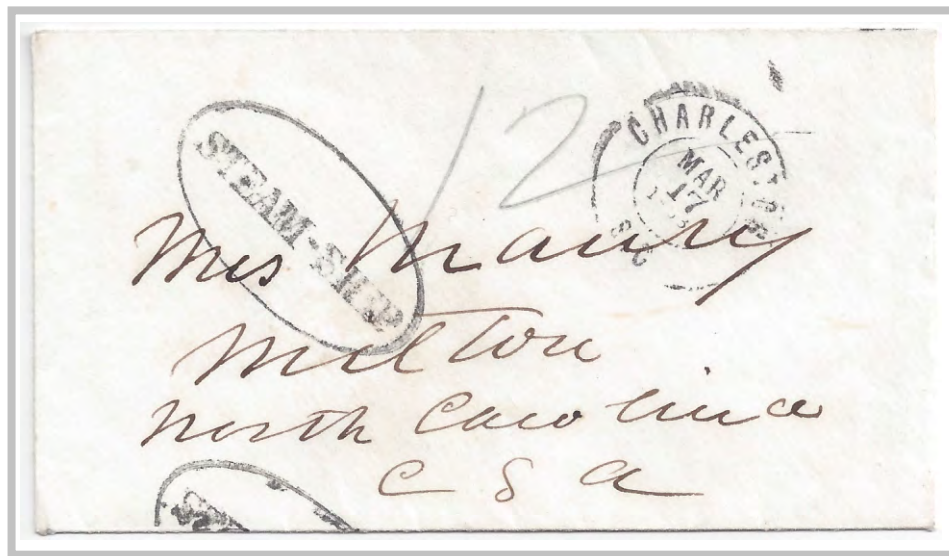 12
STEAM-SHIP
CHARLESTON
MAR
17
S.C
Mrs Maury
Milton
North Carolina
C S A